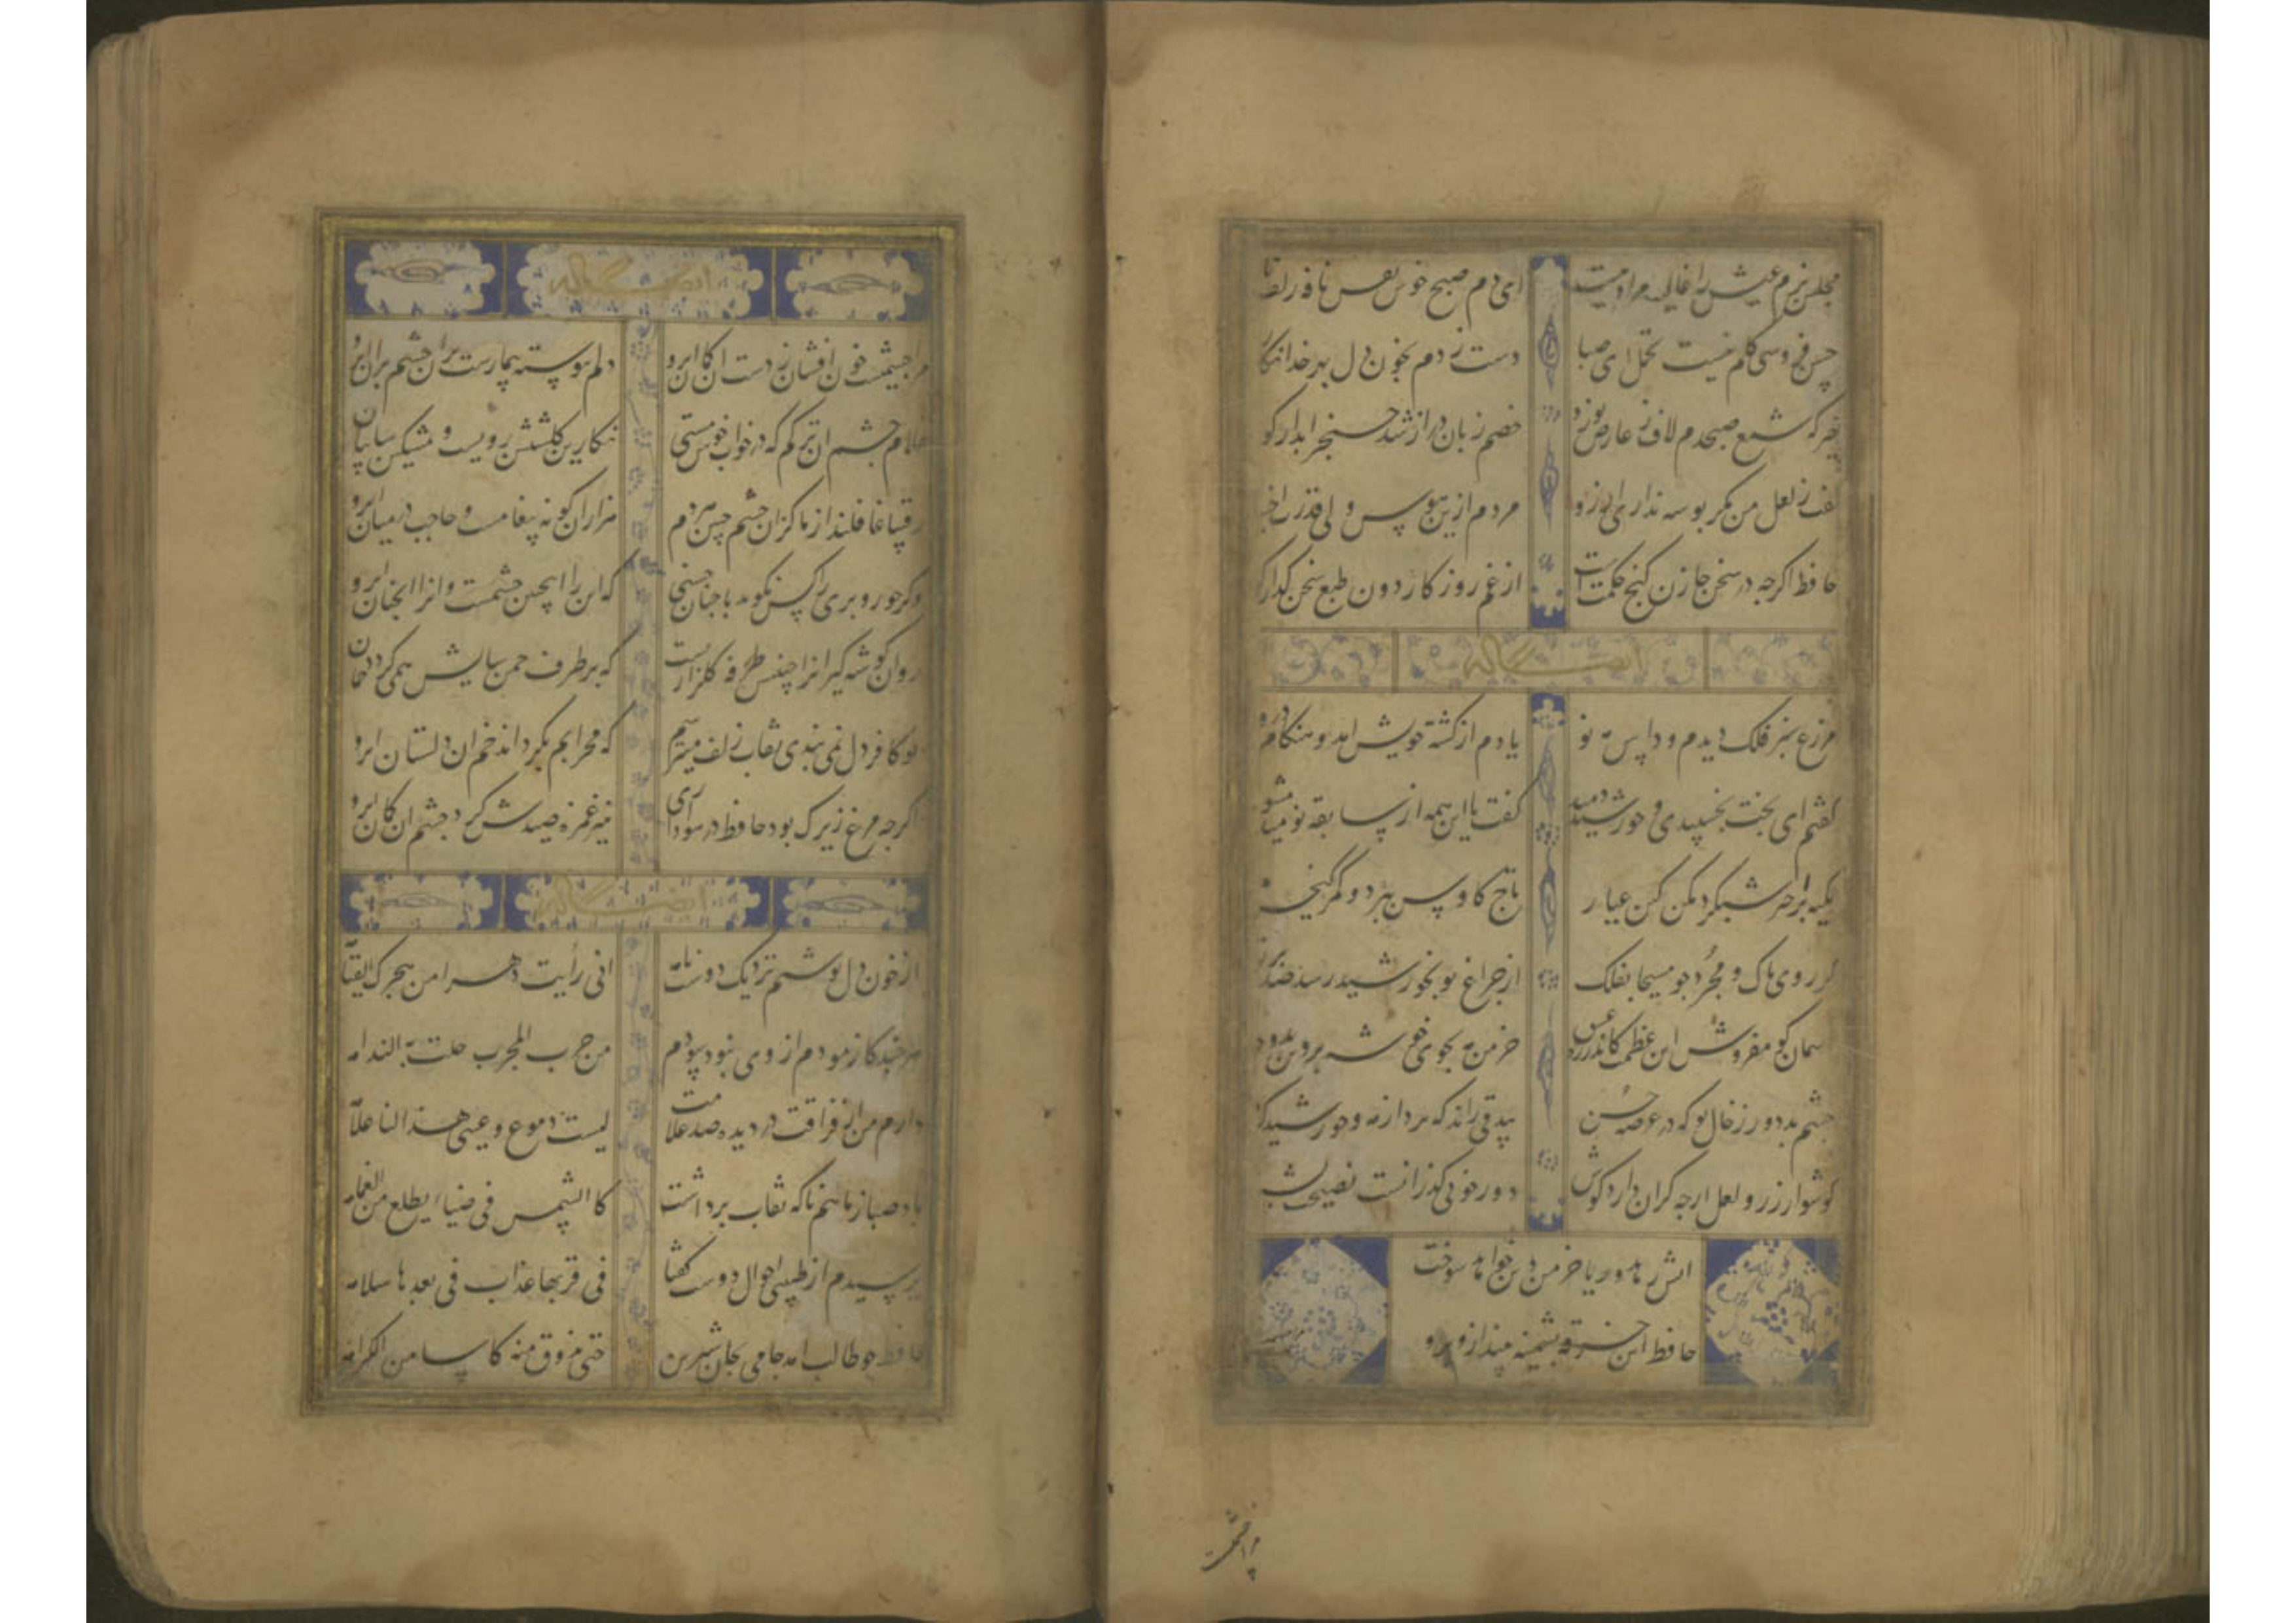 مجلس بزم عیش را غالیه مراد نیست ای دم صبح خوش نفس نافه زلف
حسن فروشی گلم نیست تحمل ای صبا دست زدم بخون دل بهر خدا نگار
که شمع صبحدم لاف ز عارض تو زد خصم زبان دراز شد خنجر ابدار کو
گفت ز لعل من مگر بوسه نداری ارزو مردم ازین هوس ولی قدرت
حافظ اگرچه در سخن خازن گنج حکمت است از غم روزگار دون طبع سخن گذار
ایضا له
مزرع سبز فلک دیدم و داس مه نو یادم از کشته خویش امد و هنگام درو
گفتم ای بخت بخسپیدی و خورشید دمید گفت با این همه از سابقه نومید مشو
تکیه بر اختر شبگرد مکن کین عیار تاج کاوس ببرد و کمر کیخسرو
گر روی پاک و مجرد چو مسیحا بفلک از چراغ تو بخورشید رسد صد
اسمان گو مفروش این عظمت کاندر عشق خرمن مه بجوی خوشه پروین بدو جو
چشم بد دور ز خال تو که در عرصه حسن بیدقی راند که برد از مه و خورشید
گوشوار زر و لعل ارچه گران دارد گوش دور خوبی گذرانست نصیحت بشنو
اتش زهد و ریا خرمن دین خواهد سوخت
حافظ این خرقه پشمینه بینداز و برو
مرا چشمیست
ایضا له
مرا چشمیست خون افشان ز دست ان کمان ابرو دلم پیوسته بیمارست بران چشم بران ابرو
غلام چشم ان ترکم که در خواب خوش مستی نگارین گلشنش رویست و مشکین سایبان
رقیبان غافلند از ما کزان چشم چین هر دم هزاران گونه پیغامست و حاجب در میان ابرو
دگر حور و پری را کس نگوید با چنان حسنی که این را اینچنین چشمست وانرا انچنان ابرو
روان گوشه گیرانرا جبینش طرفه گلزاریست که بر طرف چمن سایش همی گردد چمان
تو کافر دل نمی بندی نقاب زلف و میترسم که محرابم بگرداند خم ان دلستان ابرو
اگرچه مرغ زیرک بود حافظ در هواداری بتیر غمزه صیدش کرد چشم ان کمان ابرو
ایضا له
از خون دل نوشتم نزدیک دوست نامه انی رأیت دهرا من هجرک القیامه
هر چند کازمودم از وی نبود سودم من جرب المجرب حلت به الندامه
دارم من از فراقت در دیده صد علامت لیست دموع عینی هذا لنا علامه
باد صبا ز ماهم ناگه نقاب برداشت کالشمس فی ضیاء یطلع من الغمامه
پرسیدم از طبیبی احوال دوست گفتا فی قربها عذاب فی بعدها سلامه
حافظ چو طالب امد جامی بجان شیرین حتی یذوق منه کاسا من الکرامه